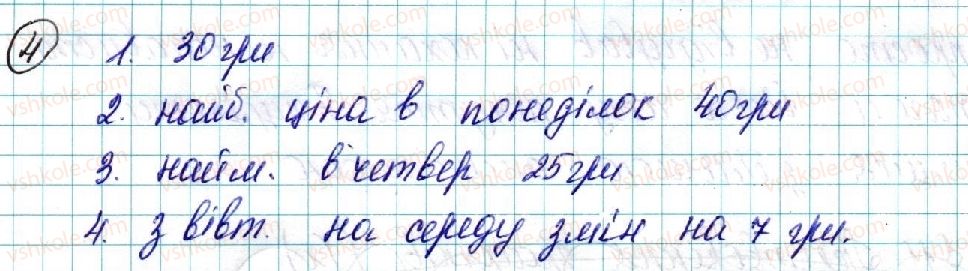 4 1. 30 грн
2. найб. ціна в понеділок 40 грн
3. найм. в четвер 25 грн
4. з вівт. на середу змін на 7 грн.